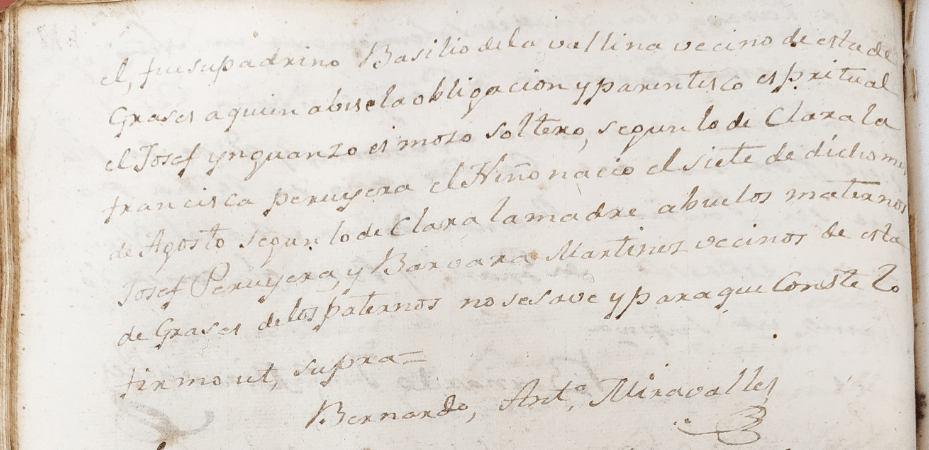 el, fuesupadrino Basilio dela vallina vecino de esta de
Grases aquien abise la obligacion y parentesco espritual
el Josef ynguanzo es moso soltero, segun lo de Clara la
francisca peruyera el Niño nacio el siete de dicho mes
de Agosto segun lo de Clara la madre abuelos maternos
Josef Peruyera, y Barvara Martines vecinos de esta
de Grases delos paternos no sesave y para que Conste lo
firmo ut, supra=
Bernardo, Antº, Miravalles